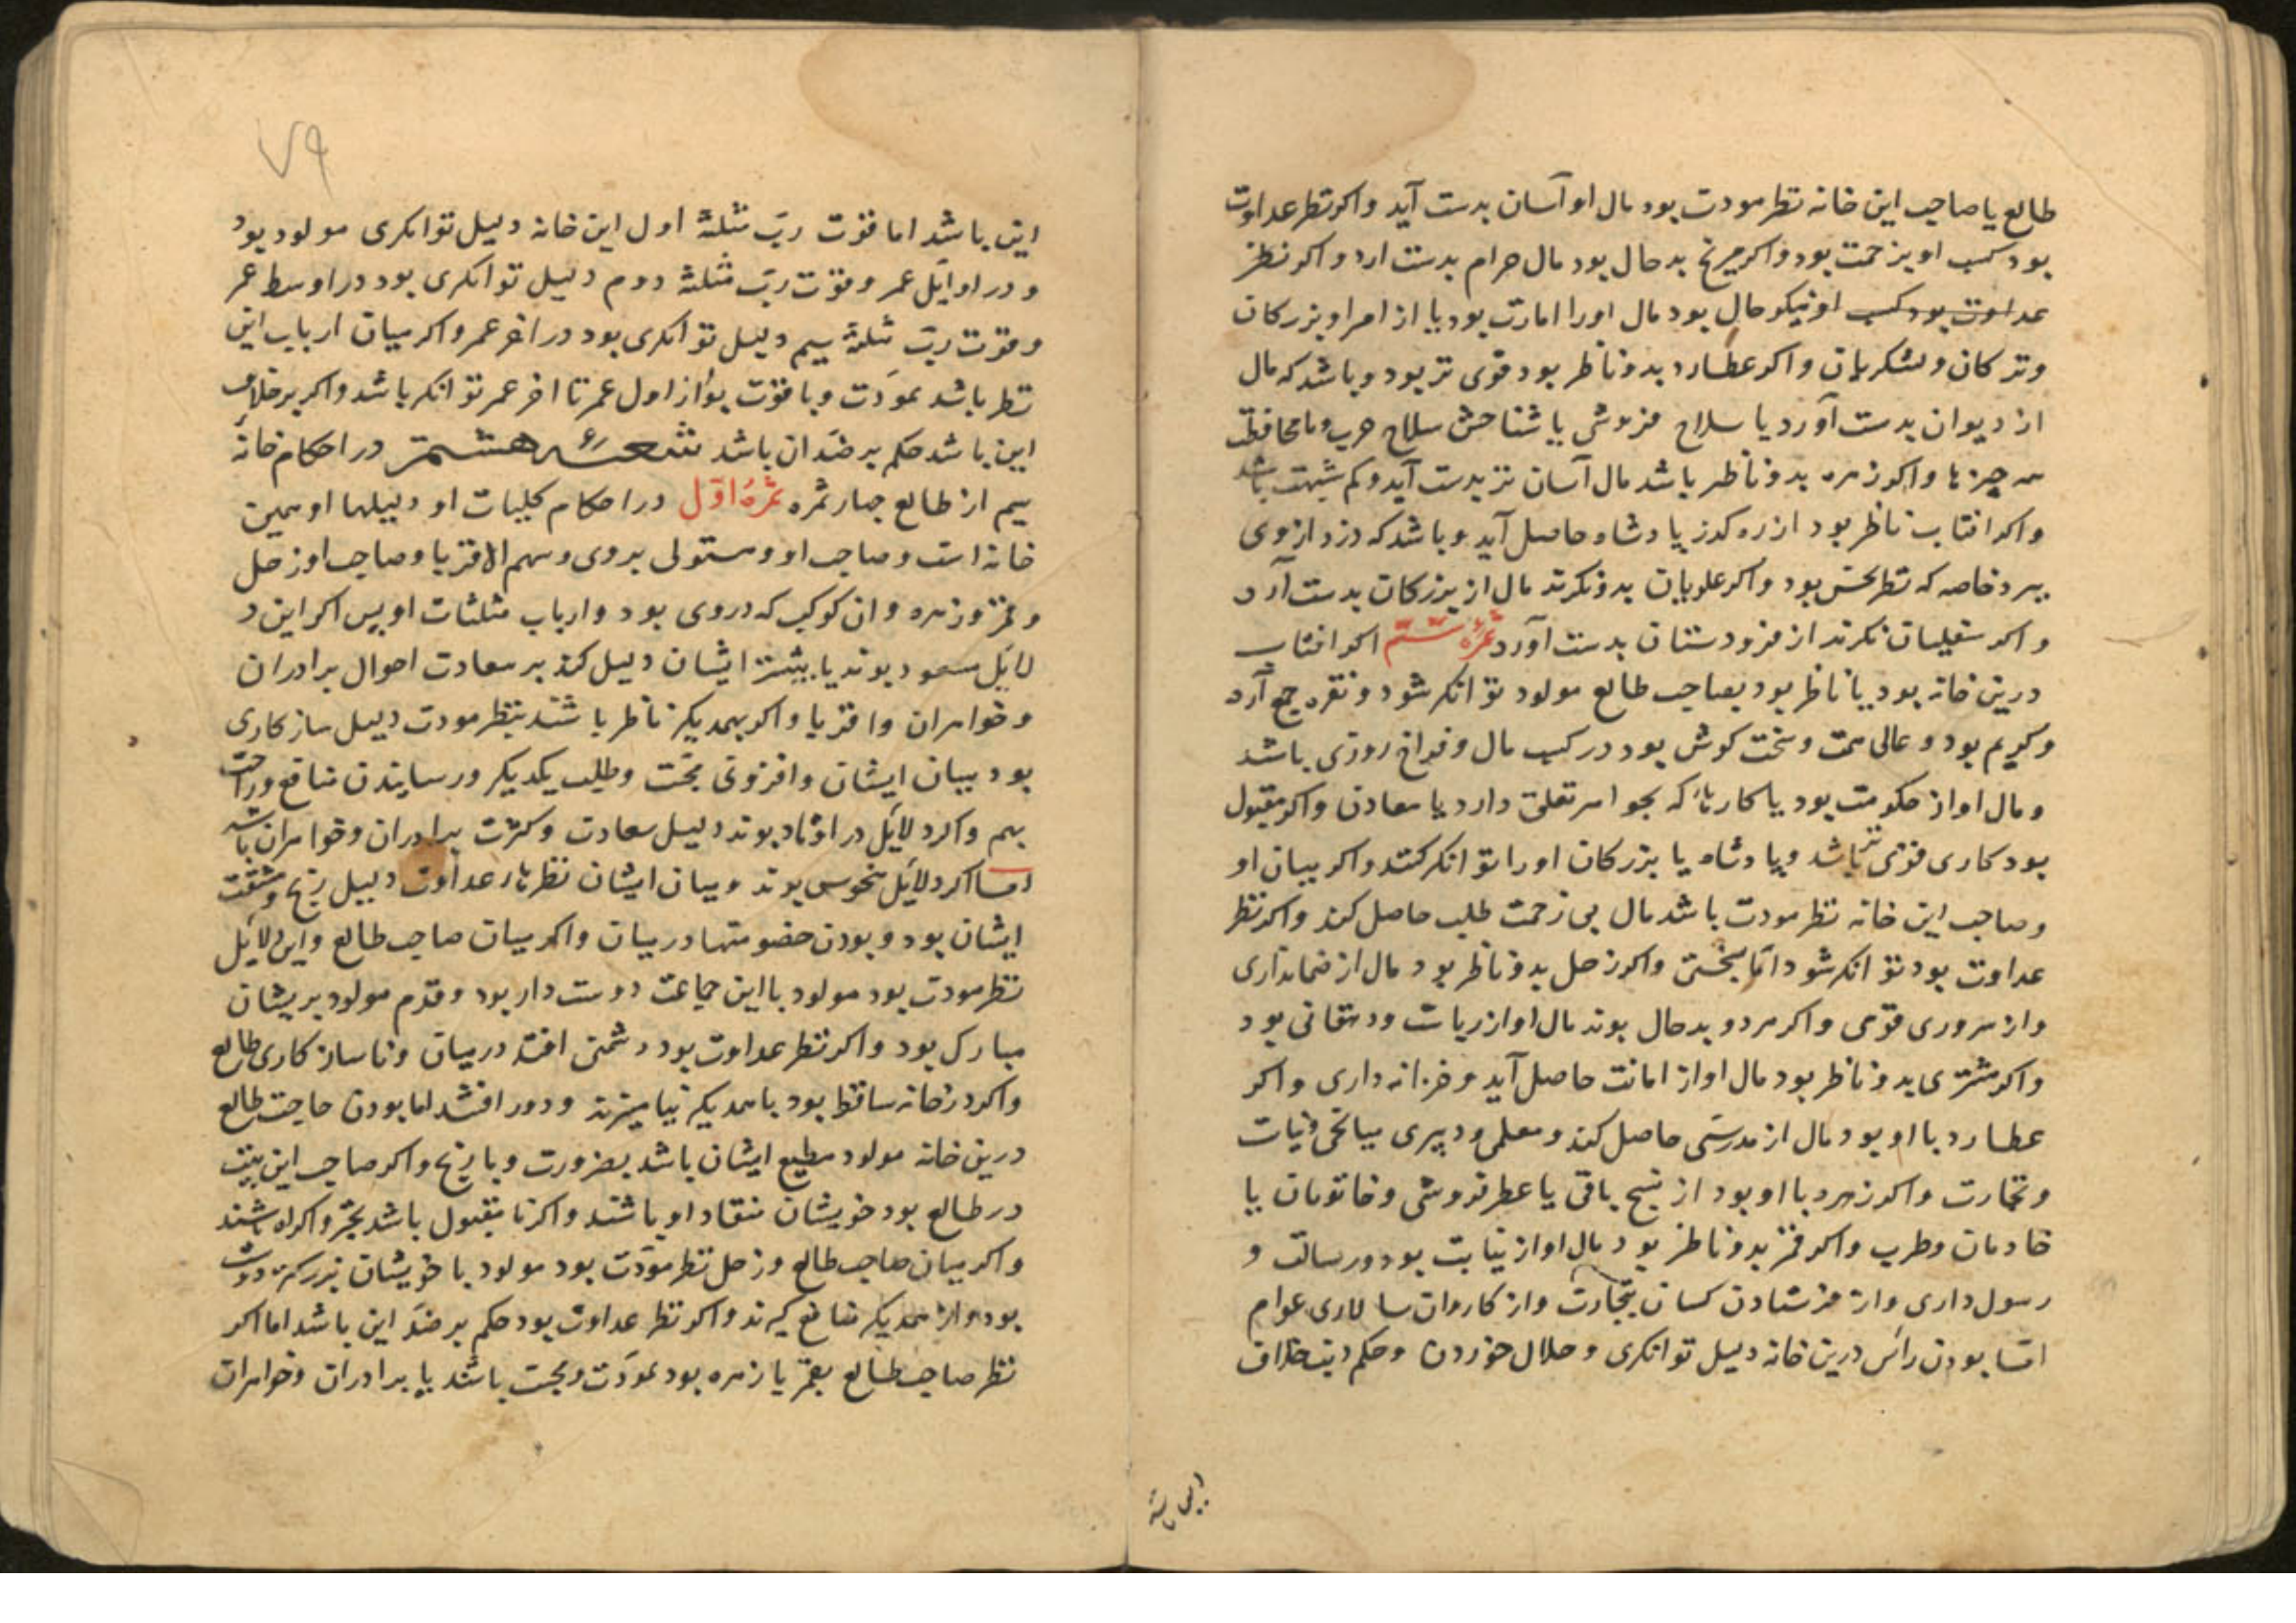 طالع یا صاحب این خانه نظر مودت بود مال او آسان بدست آید واکر نظر عداوت
بود کسب او بزحمت بود واکر مریخ بدحال بود مال حرام بدست ارد واکر نظر
عداوت بود کسب او نیکو حال بود مال اورا امارت بود یا از امرا و بزرکان
وترکان ولشکریان واکر عطارد بدو ناظر بود قوی تر بود وباشد که مال
از دیوان بدست آورد یا سلاح فروشی یا شناختن سلاح حرب و یا محافظت
سر چیزها واکر زهره بدو ناظر باشد مال آسان تر بدست آید وکم شبهت باشد
واکر افتاب ناظر بود از ره کذر پادشاه حاصل آید وباشد که دزد از وی
ببرد خاصه که نظر نحس بود واکر علویان بدو نکرند مال از بزرکان بدست آرد
واکر سفلیان نکرند از فرودستان بدست آورد ثمرهٔ ششم اکر افتاب
درین خانه بود یا ناظر بود بصاحب طالع مولود توانکر شود ونقره جمع آرد
وکریم بود وعالی همت وسخت کوش بود در کسب مال وفراخ روزی باشد
ومال او از حکومت بود یا کارهاء که بجواهر تعلق دارد یا معادن واکر مقبول
بود کاری قوی تر باشد وپادشاه یا بزرکان اورا توانکر کنند واکر میان او
وصاحب این خانه نظر مودت باشد مال بی زحمت طلب حاصل کند واکر نظر
عداوت بود توانکر شود امّا بسختی واکر زحل بدو ناظر بود مال از ضمانداری
واز سروری قومی واکر هر دو بدحال بوند مال او از ریاست ودهقانی بود
واکر مشتری بدو ناظر بود مال او از امانت حاصل آید وخزانه داری واکر
عطارد با او بود مال از مدرسی حاصل کند ومعلمی ودبیری میانجی ونیات
وتجارت واکر زهره با او بود از نسج بافی یا عطر فروشی وخاتونان یا
خادمان وطرب واکر قمر بدو ناظر بود مال او از نیابت بود ورسالت و
رسول داری واز فرستادن کسان بتجارت واز کاروان سالاری عوام
امّا بودن راس درین خانه دلیل توانکری وحلال خوردن وحکم ذنب خلاف
۷۹
این باشد اما قوّت ربّ مثلثهٔ اول این خانه دلیل توانکری مولود بود
ودر اوایل عمر وقوّت ربّ مثلثهٔ دوم دلیل توانکری بود در اوسط عمر
وقوّت ربّ مثلثهٔ سیم دلیل توانکری بود در اخر عمر واکر میان ارباب این
نظر باشد بمودّت وبا قوّت بود از اول عمر تا اخر عمر توانکر باشد واکر برخلاف
این باشد حکم بر ضد ان باشد شعبهٔ هشتم در احکام خانهٔ
سیم از طالع چهار ثمره ثمرهٔ اوّل در احکام کلیات او دلیلها او همین
خانه است وصاحب او ومستولی بروی وسهم الاقربا وصاحب او زحل
وقمر وزهره وان کوکب که دروی بود وارباب مثلثات او پس اکر این د
لایل مسعود بوند یا بیشتر ایشان دلیل کند بر سعادت احوال برادران
وخواهران واقربا واکر بهمدیکر ناظر باشند بنظر مودت دلیل سازکاری
بود میان ایشان وافزونی محبّت وطلب یکدیکر ورسایندن منافع وراحت
بهم واکر دلایل در اوتاد بوند دلیل سعادت وکثرت برادران وخواهران باشد
امّا اکر دلایل منحوس بوند ومیان ایشان نظرهاء عداوت دلیل رنج ومشقت
ایشان بود وبودن خصومتها در میان واکر میان صاحب طالع واین دلایل
نظر مودت بود مولود با این جماعت دوست دار بود وقدم مولود بریشان
مبارک بود واکر نظر عداوت بود دشمنی افتد در میان وناسازکاری طالع
واکر درخانه ساقط بود با همدیکر نیامیزند ودور افتند اما بودن صاحب طالع
درین خانه مولود مطیع ایشان باشد بضرورت وبا رنج واکر صاحب این بیت
در طالع بود خویشان منقاد او باشند واکر نا مقبول باشد بجبر واکراه باشند
واکر میان صاحب طالع وزحل نظر مودّت بود مولود با خویشان بزرکتر دوست
بود واز همدیکر منافع کیرند واکر نظر عداوت بود حکم بر ضدّ این باشد اما اکر
نظر صاحب طالع بقمر یا زهره بود بمودّت ومحبت باشند با برادران وخواهران